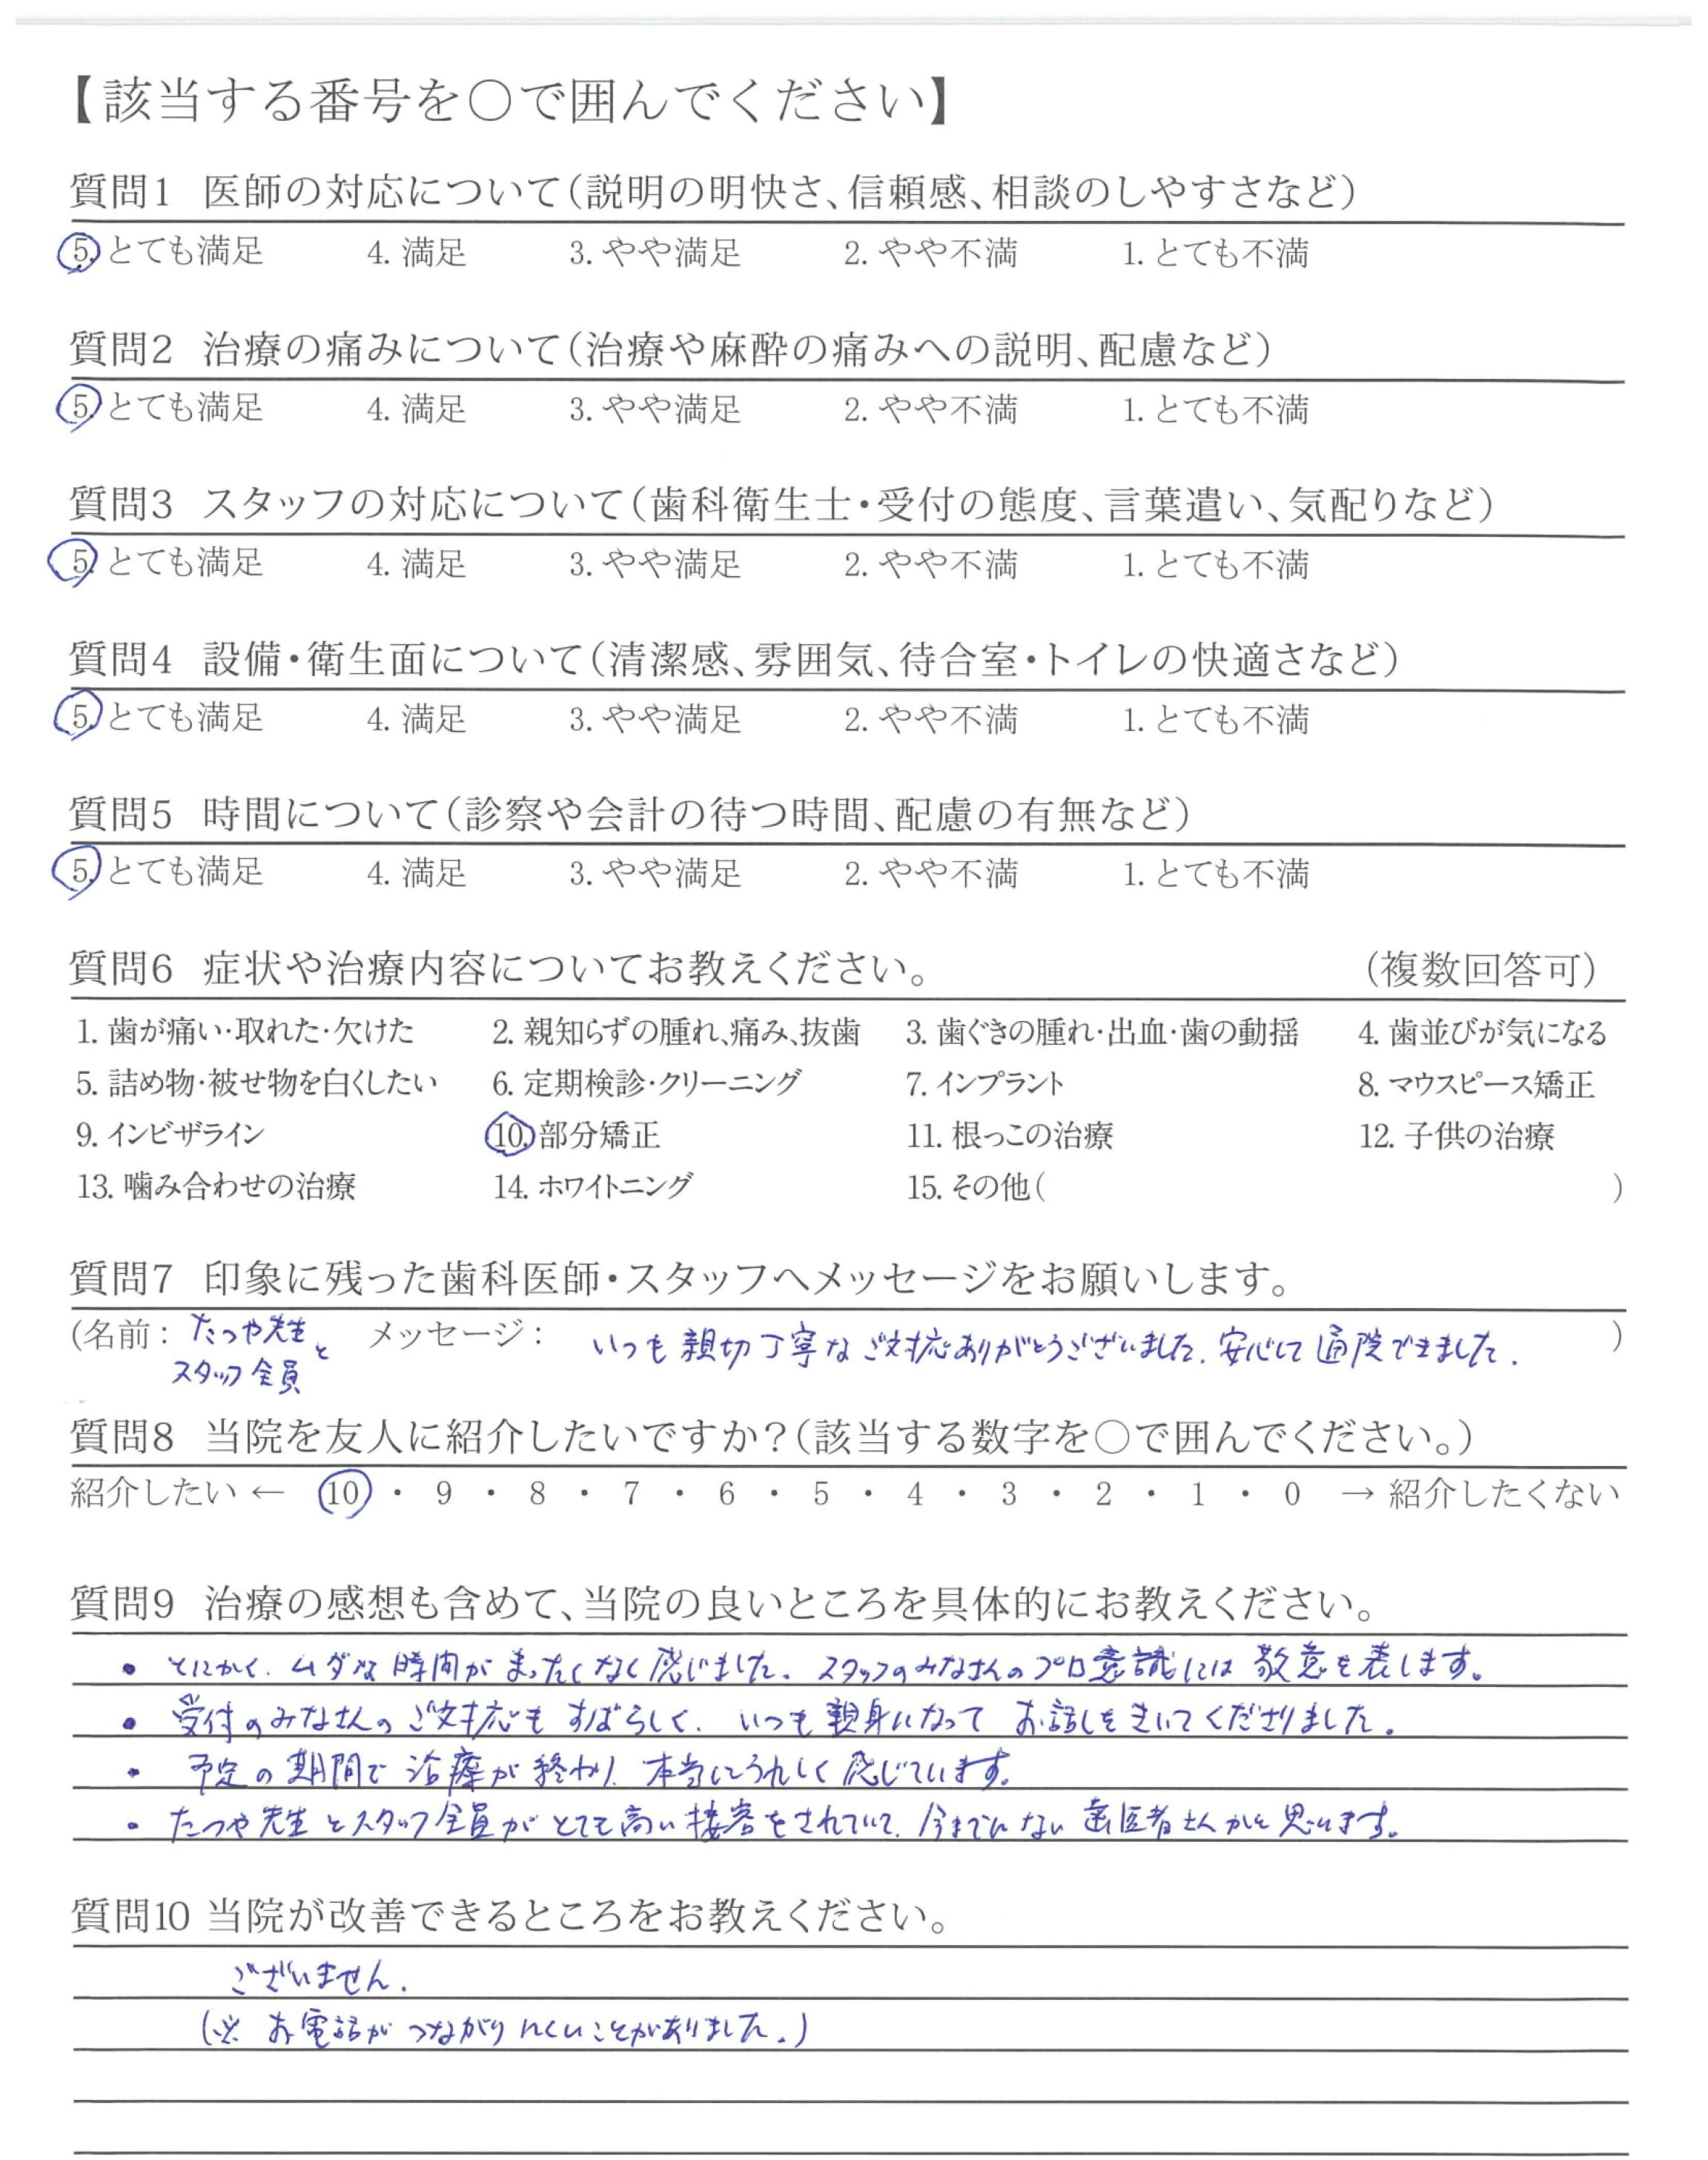 【該当する番号を○で囲んでください】
質問1 医師の対応について(説明の明快さ、信頼感、相談のしやすさなど)
5. とても満足 4. 満足 3. やや満足 2. やや不満 1. とても不満
質問2 治療の痛みについて(治療や麻酔の痛みへの説明、配慮など)
5. とても満足 4. 満足 3. やや満足 2. やや不満 1. とても不満
質問3 スタッフの対応について(歯科衛生士・受付の態度、言葉遣い、気配りなど)
5. とても満足 4. 満足 3. やや満足 2. やや不満 1. とても不満
質問4 設備・衛生面について(清潔感、雰囲気、待合室・トイレの快適さなど)
5. とても満足 4. 満足 3. やや満足 2. やや不満 1. とても不満
質問5 時間について(診察や会計の待つ時間、配慮の有無など)
5. とても満足 4. 満足 3. やや満足 2. やや不満 1. とても不満
質問6 症状や治療内容についてお教えください。 (複数回答可)
1. 歯が痛い・取れた・欠けた 2. 親知らずの腫れ、痛み、抜歯 3. 歯ぐきの腫れ・出血・歯の動揺 4. 歯並びが気になる
5. 詰め物・被せ物を白くしたい 6. 定期検診・クリーニング 7. インプラント 8. マウスピース矯正
9. インビザライン 10. 部分矯正 11. 根っこの治療 12. 子供の治療
13. 噛み合わせの治療 14. ホワイトニング 15. その他( )
質問7 印象に残った歯科医師・スタッフへメッセージをお願いします。
(名前: たつや先生と メッセージ: いつも親切丁寧なご対応ありがとうございました。安心して通院できました。 )
スタッフ全員
質問8 当院を友人に紹介したいですか?(該当する数字を○で囲んでください。)
紹介したい ← 10 ・ 9 ・ 8 ・ 7 ・ 6 ・ 5 ・ 4 ・ 3 ・ 2 ・ 1 ・ 0 → 紹介したくない
質問9 治療の感想も含めて、当院の良いところを具体的にお教えください。
・とにかく、ムダな時間がまったくなく感じました。スタッフのみなさんのプロ意識には敬意を表します。
・受付のみなさんのご対応もすばらしく、いつも親身になってお話しをきいてくださりました。
・予定の期間で治療が終わり、本当にうれしく感じています。
・たつや先生とスタッフ全員がとても高い接客をされていて、今までにない歯医者さんかと思います。
質問10 当院が改善できるところをお教えください。
ございません。
(※ お電話がつながりにくいことがありました。)